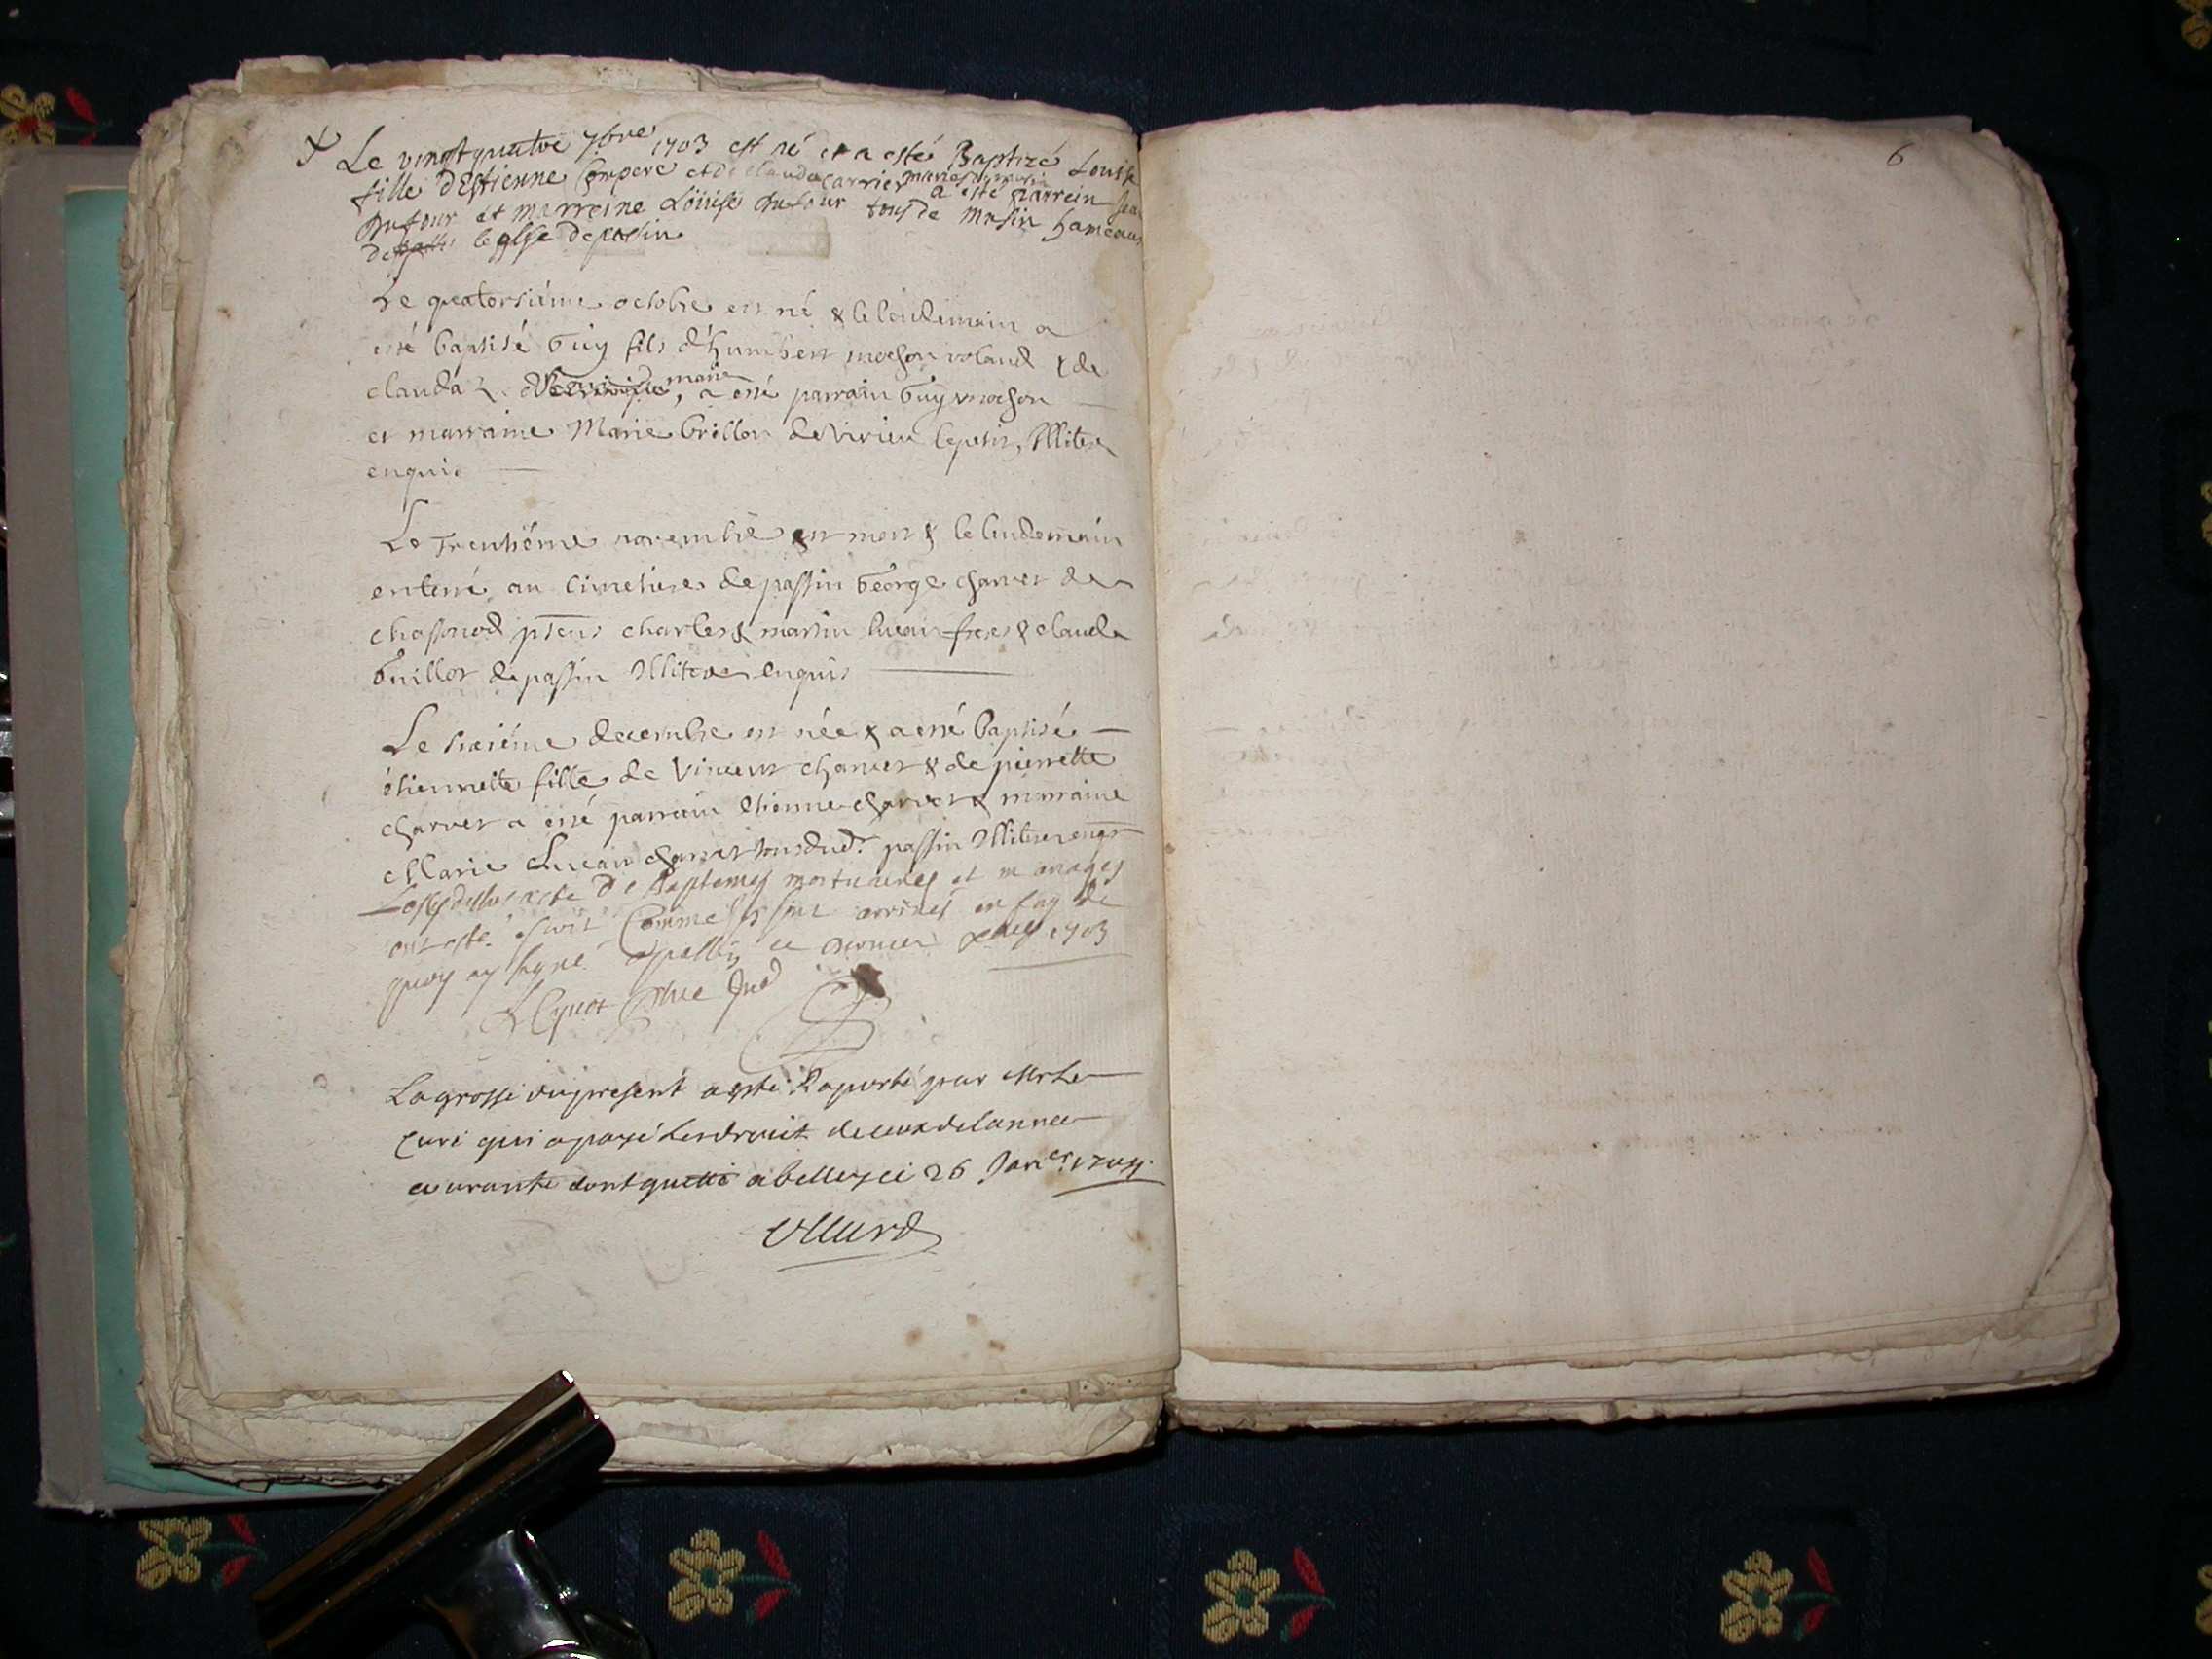 Le vingtquatre 7bre 1703 est né et a esté Baptizé Louise
fille d'Estienne Compere et de Clauda Carrier a esté parrein
Dufour et marreine Loüise Dufour tous de Masin hameaux
de l
Le quatorsiéme octobre est né & le lendemain a
esté baptisé Guy fils d'humbert mochon roland & de
clauda marie, a esté parrain Guy mochon
et marraine Marie Brillon de Virieu le petit, Illiteré
enquis
Le Trentiéme novembre est mort & le lendemain
enterré au cimetiere de passin George charvet de
chassonod pnts charles & martin lucain freres & claude
Guillot de passin Illiteré enquis
Le sixiéme decembre est née & a esté baptisée
étiennette fille de Vincent charvet & de pierrette
charvet a esté parrain etienne charvet & marraine
Marie Lucain charvet tous dud. passin Illiteré enqs
acte de Baptemes mortuaires et mariages
ont esté escrit Comme ils sont arrivés en foy de
quoy ay signé a passin ce dernier xbre 1703
Curé
La grosse du present a esté Raporté par Mr Le
Curé qui a payé les droit de ceux de lannee
courante dont quitté a belley ce 26 Janer. 1704.
6